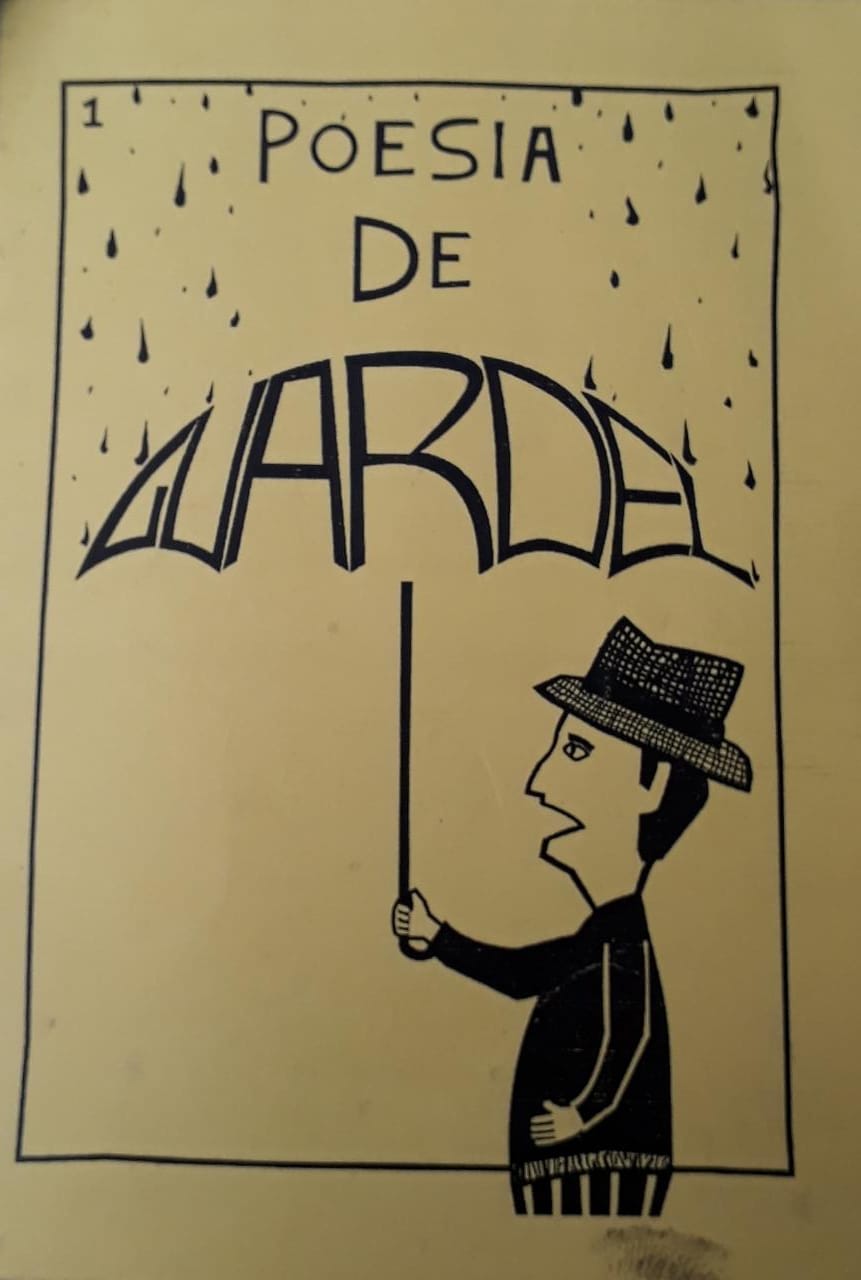 1
POESIA
DE
GUARDEL